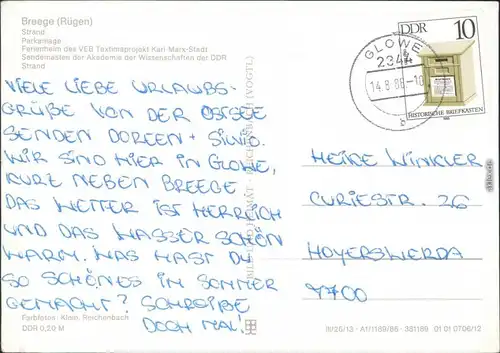 Breege (Rügen)
Strand
Parkanlage
Ferienheim des VEB Textimaprojekt Karl-Marx-Stadt
Sendemasten der Akademie der Wissenschaften der DDR
Strand
VIELE LIEBE URLAUBS-
GRÜßE VON DER OSTSEE
SENDEN DOREEN + SILVIO.
WIR SIND HIER IN GLOWE,
KURZ NEBEN BREEGE
DAS WETTER IST HERRLICH
UND DAS WASSER SCHÖN
WARM. WAS HAST DU
SO SCHÖNES IM SOMMER
GEMACHT? SCHREIBE
DOCH MAL!
Farbfotos: Klein, Reichenbach
DDR 0,20 M
BILD UND HEIMAT REICHENBACH (VOGTL)
GLOWE
2344
14.8.86-10
b
DDR 10
HISTORISCHE BRIEFKÄSTEN
HEIKE WINKLER
CURIESTR. 26
HOYERSWERDA
7700
III/26/13 · A1/1189/86 · 381189 01 01 0706/12